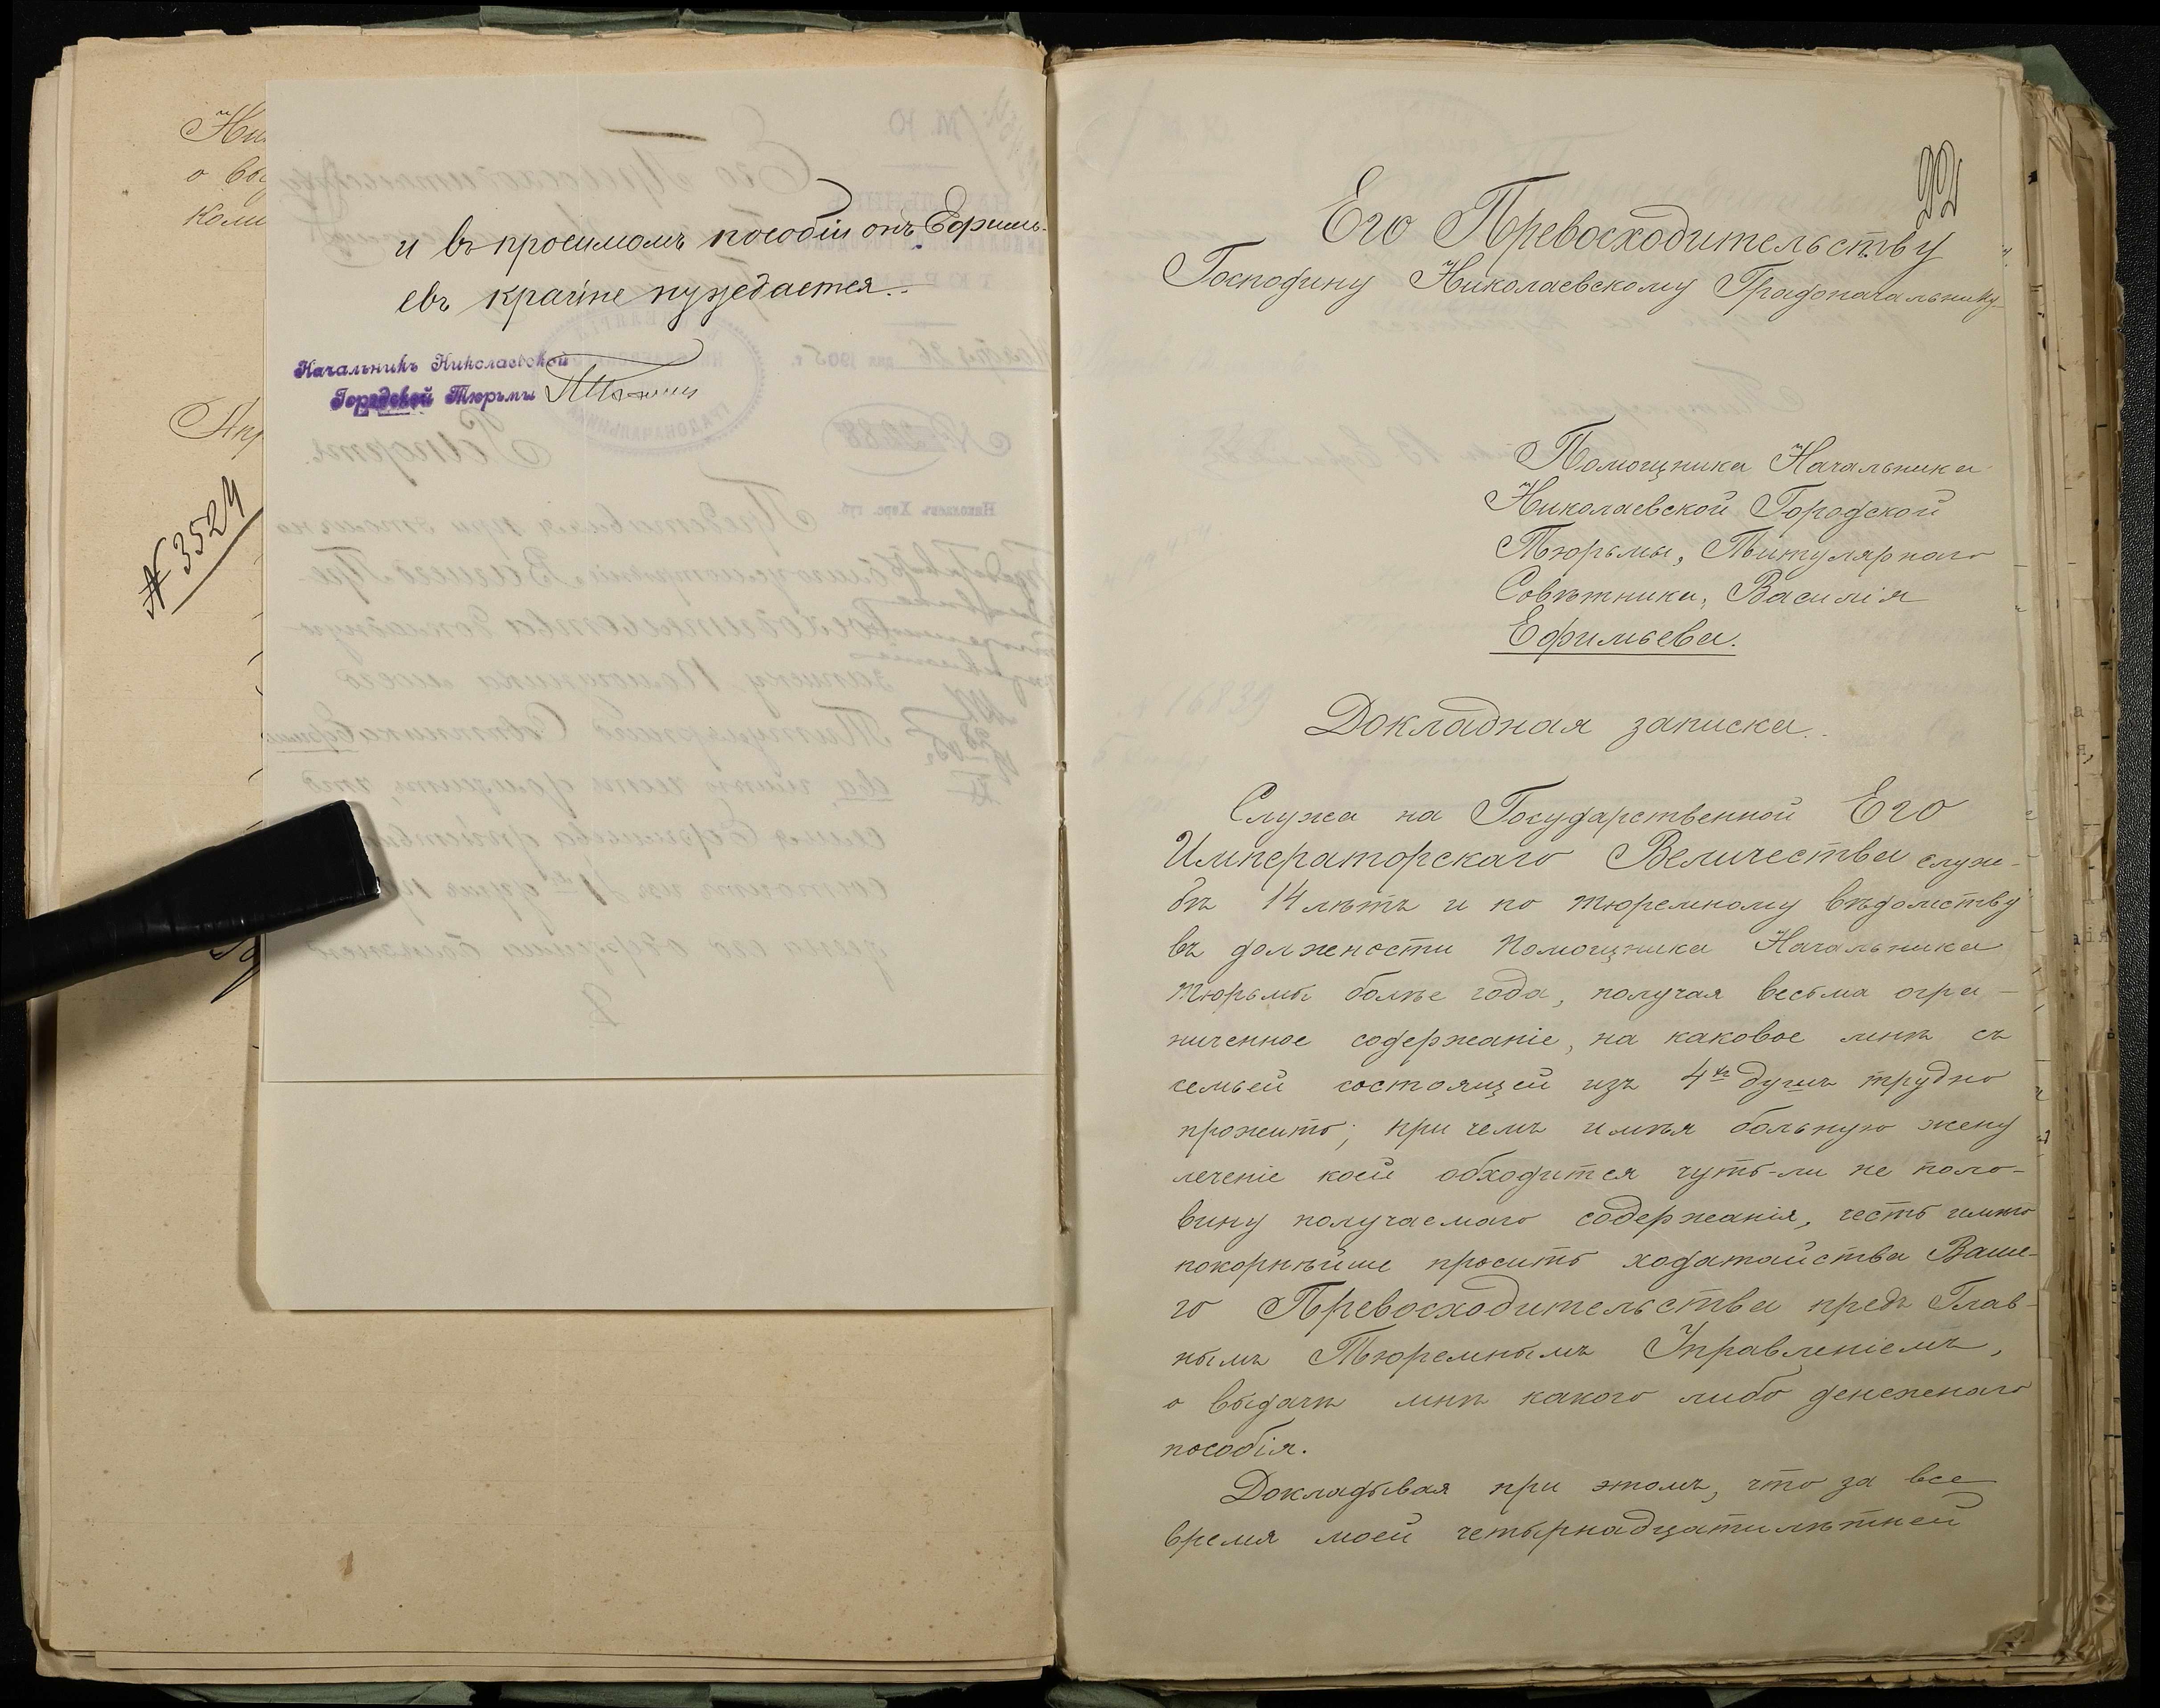 Ни
о вы
коли
Апр
№ 3524
и въ просимомъ пособіи онъ Ефимь-
евъ крайне нуждается.
Начальникъ Николаевской
Городской Тюрьмы
92
Его Превосходительству
Господину Николаевскому Градоначальнику
Помощника Начальника
Николаевской Городской
Тюрьмы, Титулярнаго
Совѣтника, Василія
Ефимьева.
Докладная записка.
Служа на Государственной Его
Императорскаго Величества служ-
бѣ 14 лѣтъ и по тюремному вѣдомству
въ должности Помощника Начальника
тюрьмы болѣе года, получая весьма огра-
ниченное содержаніе, на каковое мнѣ съ
семьей состоящей изъ 4хъ душъ трудно
прожить; при чемъ имѣя больную жену
леченіе коей обходится чуть-ли не поло-
вину получаемаго содержанія, честь имѣю
покорнѣйше просить ходатайства Ваше-
го Превосходительства предъ Глав-
нымъ Тюремнымъ Управленіемъ,
о выдачѣ мнѣ какого либо денежнаго
пособія.
Докладывая при этомъ, что за все
время моей четырнадцатилѣтней